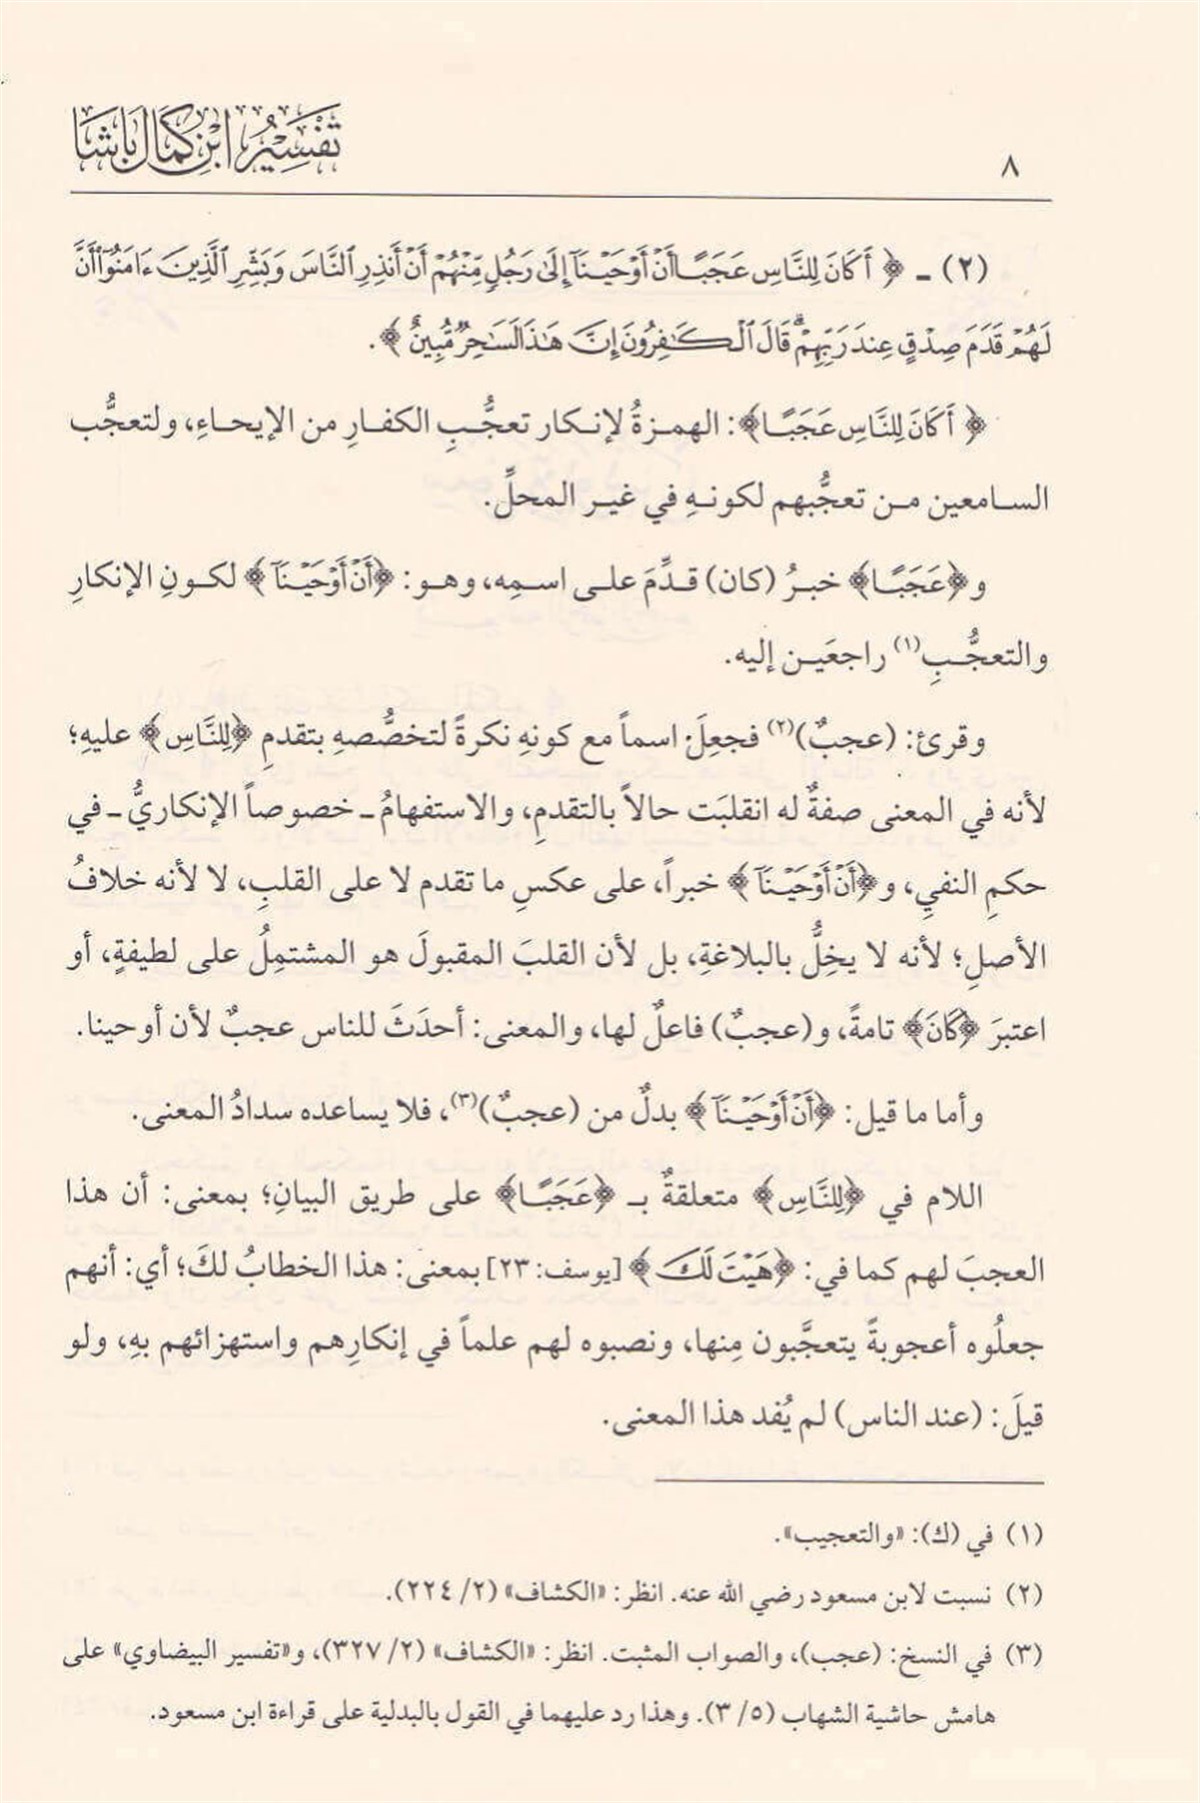 تَفْسِيرُ ابْنِ كَمَال بَاشَا
٨
(٢) - ﴿أَكَانَ لِلنَّاسِ عَجَبًا أَنْ أَوْحَيْنَآ إِلَىٰ رَجُلٍ مِّنْهُمْ أَنْ أَنذِرِ ٱلنَّاسَ وَبَشِّرِ ٱلَّذِينَ ءَامَنُوٓا۟ أَنَّ
لَهُمْ قَدَمَ صِدْقٍ عِندَ رَبِّهِمْ ۗ قَالَ ٱلْكَـٰفِرُونَ إِنَّ هَـٰذَا لَسَـٰحِرٌ مُّبِينٌ﴾.
﴿أَكَانَ لِلنَّاسِ عَجَبًا﴾: الهمزةُ لإنكار تعجُّبِ الكفارِ من الإيحاءِ، ولتعجُّب
السامعين من تعجُّبهم لكونهِ في غير المحلِّ.
و﴿عَجَبًا﴾ خبرُ (كان) قدِّمَ على اسمِه، وهو: ﴿أَنْ أَوْحَيْنَآ﴾ لكونِ الإنكارِ
والتعجُّبِ(١) راجعَين إليه.
وقرئ: (عجبٌ)(٢) فجعِلَ اسماً مع كونهِ نكرةً لتخصُّصهِ بتقدمِ ﴿لِلنَّاسِ﴾ عليهِ؛
لأنه في المعنى صفةٌ له انقلبَت حالاً بالتقدمِ، والاستفهامُ - خصوصاً الإنكاريُّ - في
حكمِ النفيِ، و﴿أَنْ أَوْحَيْنَآ﴾ خبراً، على عكسِ ما تقدم لا على القلبِ، لا لأنه خلافُ
الأصلِ؛ لأنه لا يخِلُّ بالبلاغةِ، بل لأن القلبَ المقبولَ هو المشتمِلُ على لطيفةٍ، أو
اعتبرَ ﴿كَانَ﴾ تامةً، و(عجبٌ) فاعلٌ لها، والمعنى: أحدَثَ للناس عجبٌ لأن أوحينا.
وأما ما قيل: ﴿أَنْ أَوْحَيْنَآ﴾ بدلٌ من (عجبٌ)(٣)، فلا يساعده سدادُ المعنى.
اللام في ﴿لِلنَّاسِ﴾ متعلقةٌ بـ ﴿عَجَبًا﴾ على طريق البيانِ؛ بمعنى: أن هذا
العجبَ لهم كما في: ﴿هَيْتَ لَكَ﴾ [يوسف: ٢٣] بمعنى: هذا الخطابُ لكَ؛ أي: أنهم
جعلُوه أعجوبةً يتعجَّبون مِنها، ونصبوه لهم علماً في إنكارِهم واستهزائهم بهِ، ولو
قيلَ: (عند الناس) لم يُفد هذا المعنى.
(١) في (ك): «والتعجيب».
(٢) نسبت لابن مسعود رضي الله عنه. انظر: «الكشاف» (٢/ ٢٢٤).
(٣) في النسخ: (عجب)، والصواب المثبت. انظر: «الكشاف» (٢/ ٣٢٧)، و«تفسير البيضاوي» على
هامش حاشية الشهاب (٥/ ٣). وهذا رد عليهما في القول بالبدلية على قراءة ابن مسعود.